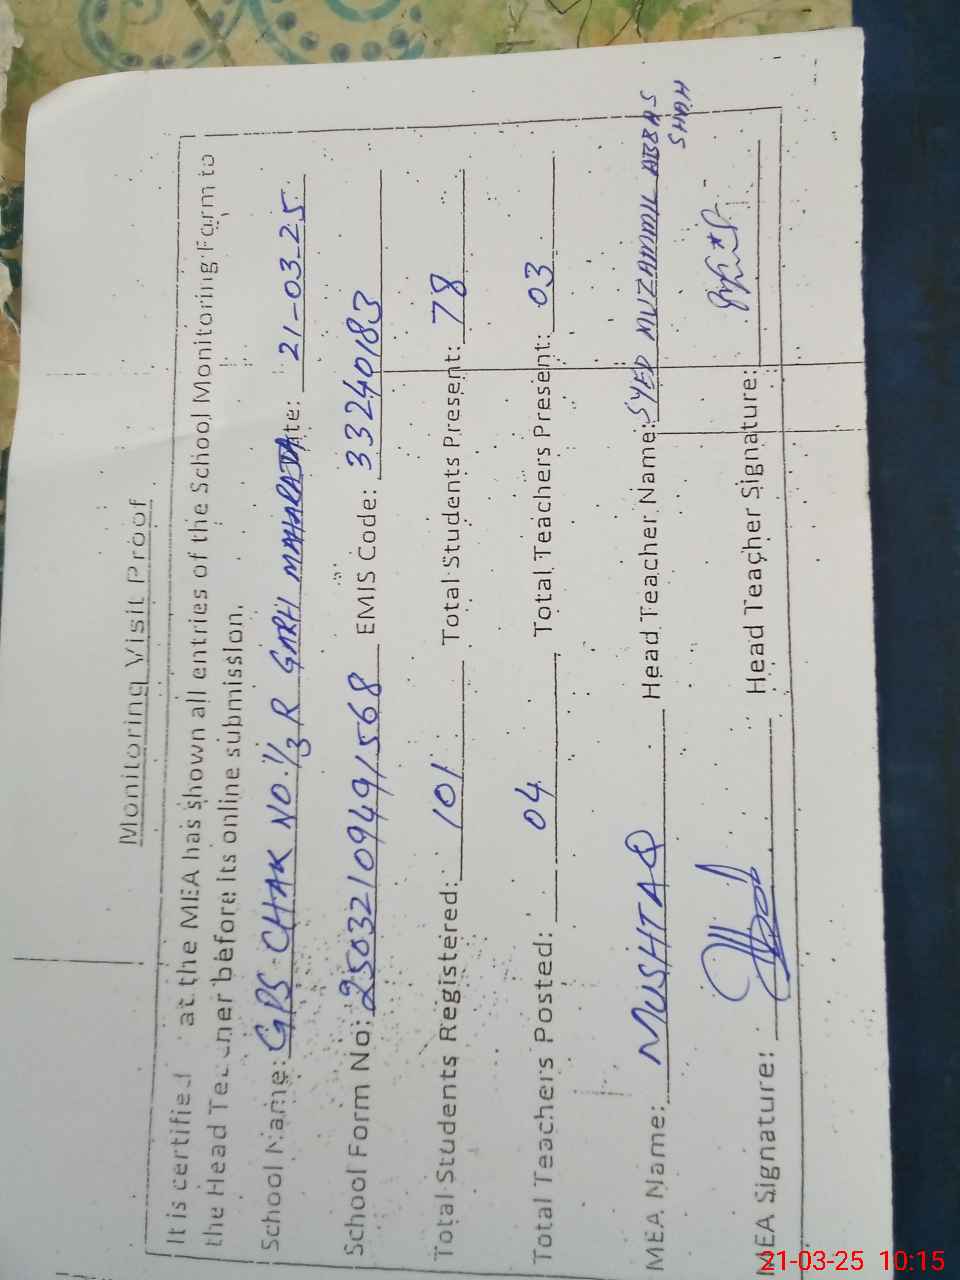 Monitoring Visit Proof
It is certified at the MEA has shown all entries of the School Monitoring Form to
the Head Teacher before its online submission.
School Name: GPS CHAK NO.1/3 R GARHI MAHARAJA Date: 21-03-25
School Form No: 25032109491568 EMIS Code: 33240183
Total Students Registered: 101 Total Students Present: 78
Total Teachers Posted: 04 Total Teachers Present: 03
MEA Name: MUSHTAQ Head Teacher Name: SYED MUZAMMIL ABBAS
SHAH
MEA Signature: Head Teacher Signature:
21-03-25 10:15